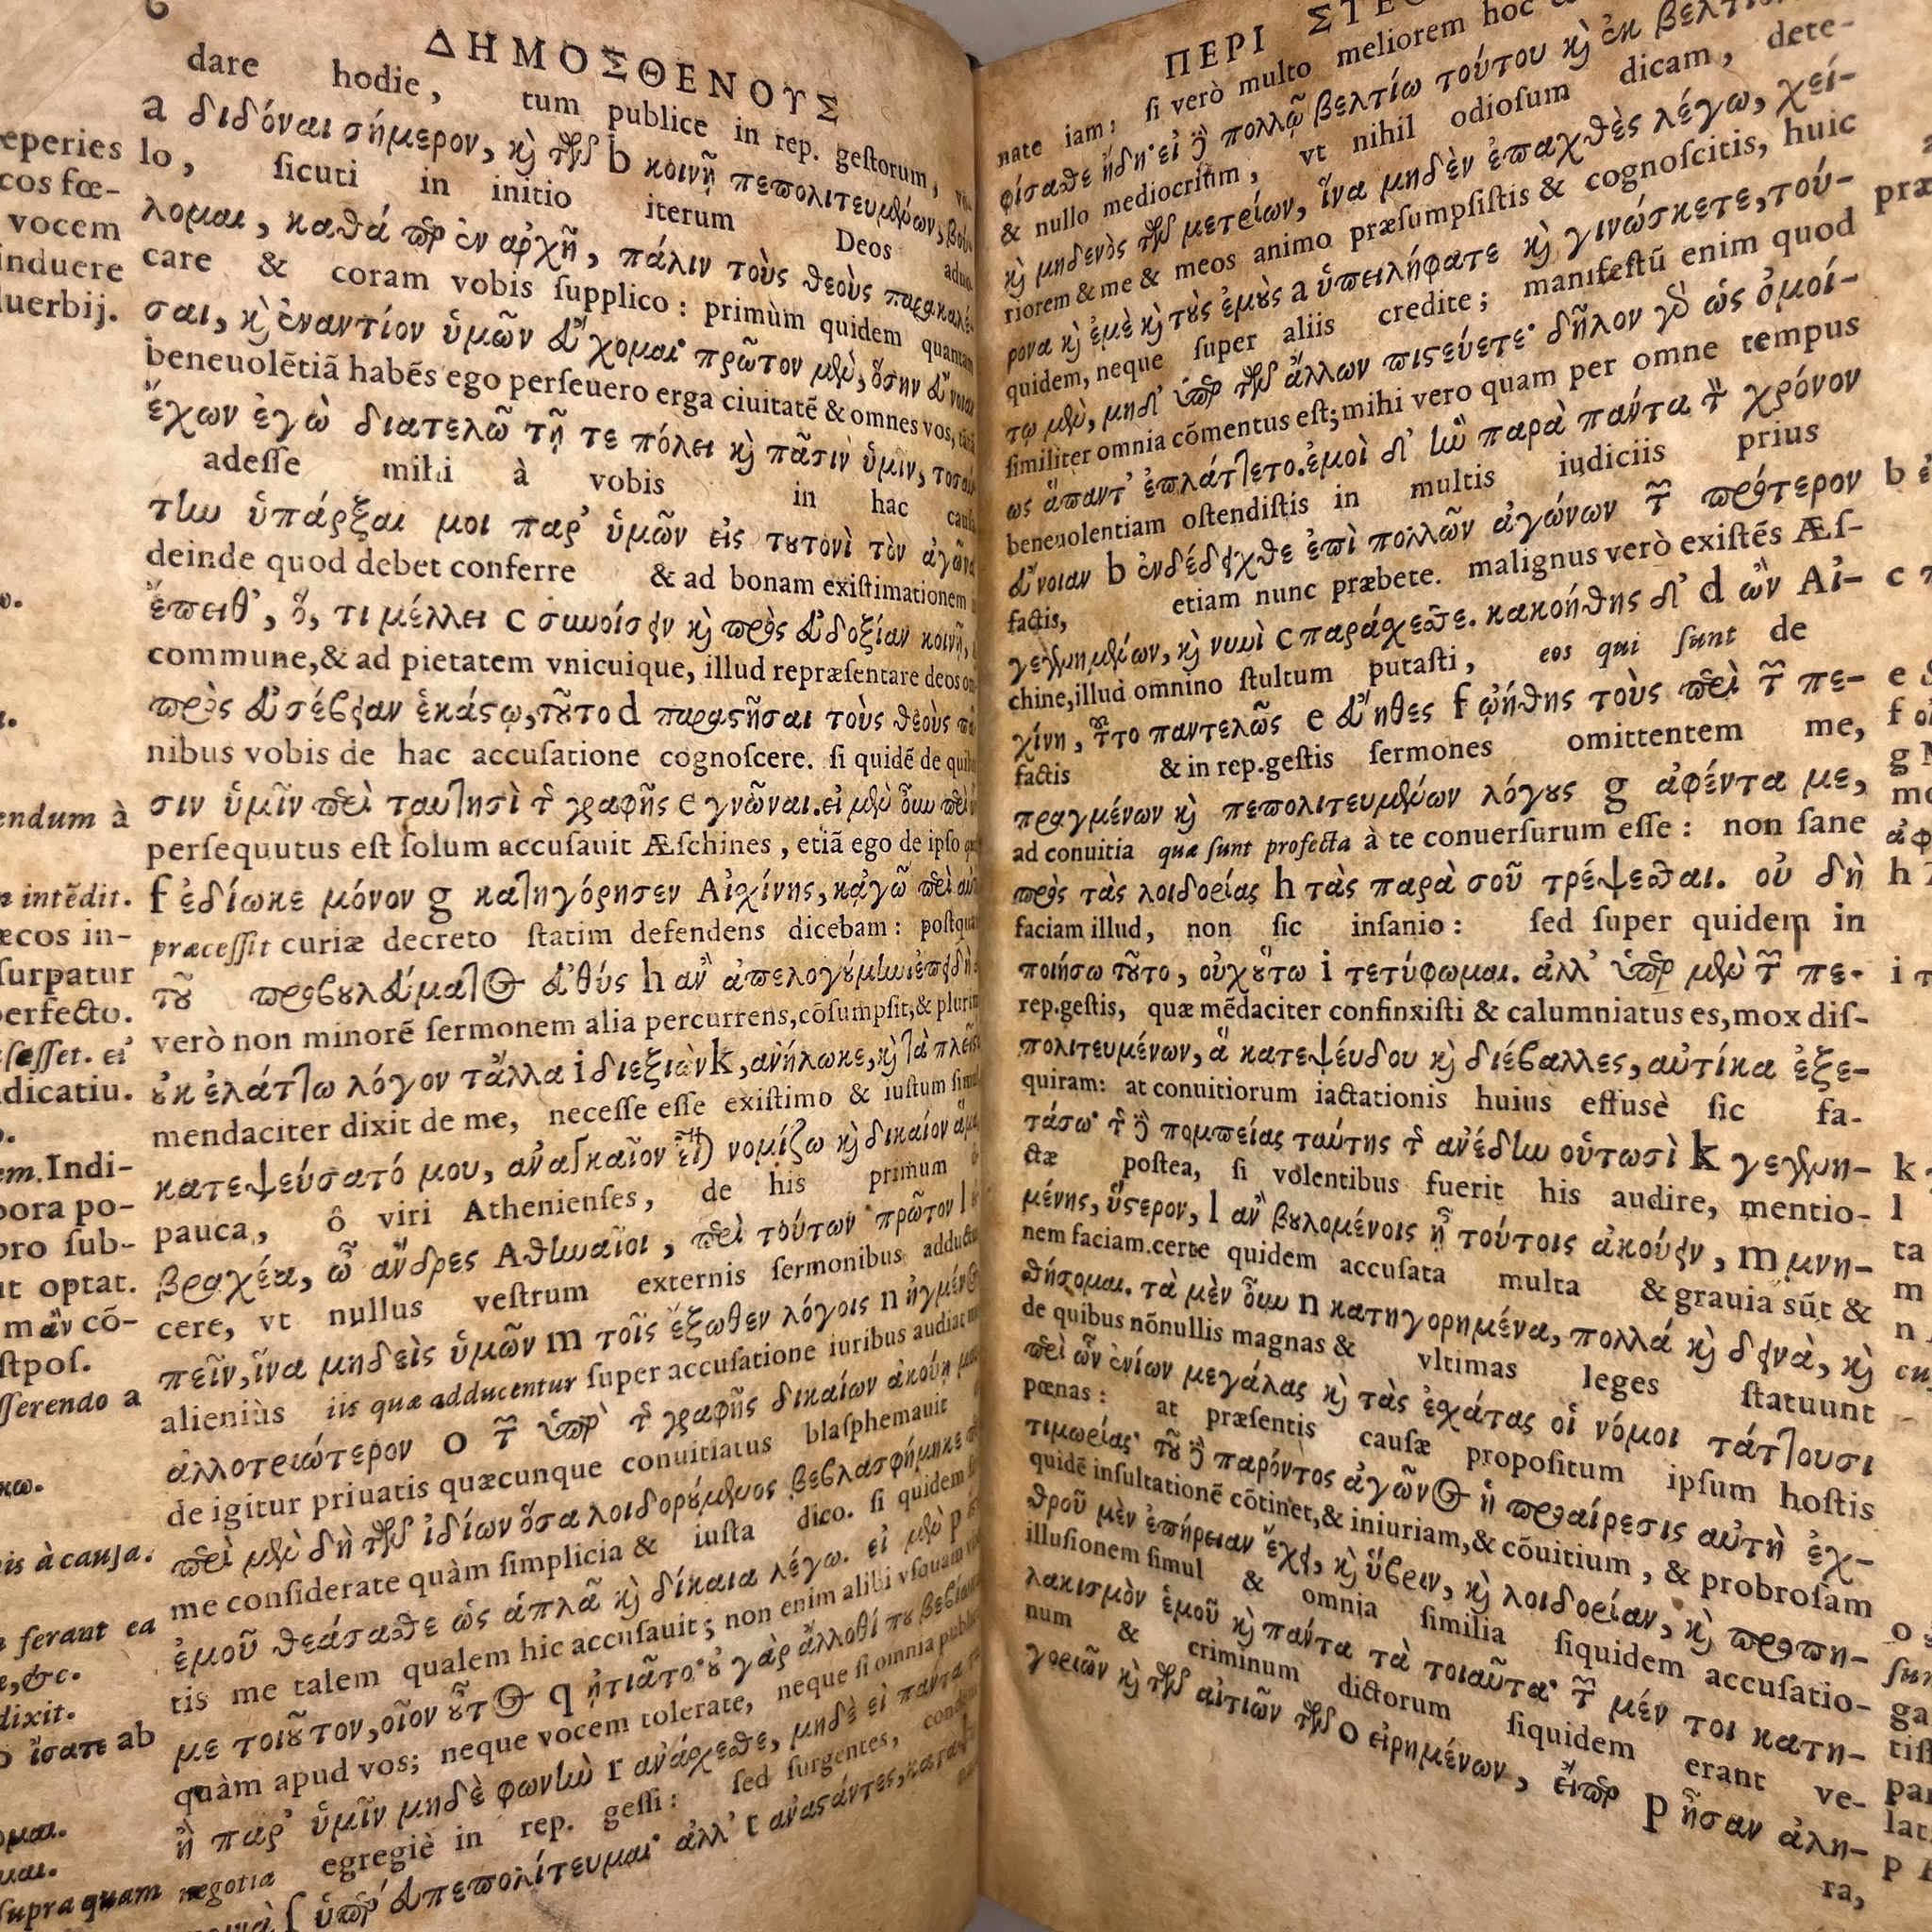 ΔΗΜΟΣΘΕΝΟΥΣ
dare hodie, tum publice in rep. gestorum,
a διδόναι σήμερον, καὶ τῶν b κοινῇ πεπολιτευμένων, βού-
lo, sicuti in initio iterum Deos aduo-
λομαι, καθάπερ ἐν ἀρχῇ, πάλιν τοὺς θεοὺς παρακαλέ-
care & coram vobis supplico: primùm quidem quantam
σαι, καὶ ἐναντίον ὑμῶν εὔχομαι· πρῶτον μὲν, ὅσην εὔνοιαν
beneuolẽtiã habẽs ego perseuero erga ciuitatẽ & omnes vos,
ἔχων ἐγὼ διατελῶ τῇ τε πόλει καὶ πᾶσιν ὑμιν, τοσαύ-
adesse mihi à vobis in hac causa
την ὑπάρξαι μοι παρ' ὑμῶν εἰς τουτονὶ τὸν ἀγῶνα
deinde quod debet conferre & ad bonam existimationem
ἔπειθ', ὅ, τι μέλλει c συνοίσειν καὶ πρὸς εὐδοξίαν κοινῇ,
commune, & ad pietatem vnicuique, illud repræsentare deos om
πρὸς εὐσέβειαν ἑκάστῳ, τοῦτο d παραστῆσαι τοὺς θεοὺς πᾶ
nibus vobis de hac accusatione cognoscere. si quidẽ de quib
σιν ὑμῖν περὶ ταυτησὶ τῆς γραφῆς e γνῶναι. εἰ μὲν οὖν περὶ ὧ
persequutus est solum accusauit Æschines, etiã ego de ipso
f ἐδίωκε μόνον g κατηγόρησεν Αἰσχίνης, κἀγὼ περὶ αὐτ
præcessit curiæ decreto statim defendens dicebam: postqua
τοῦ προβουλεύματος εὐθύς h ἂν ἀπελογούμην· ἐπειδὴ
verò non minorẽ sermonem alia percurrens, cõsumpsit, & plurim
οὐκ ἐλάττω λόγον τἄλλα i διεξιὼν k, ἀνήλωκε, καὶ τὰ πλεῖστ
mendaciter dixit de me, necesse esse existimo & iustum simul
κατεψεύσατό μου, ἀναγκαῖον εἶναι νομίζω καὶ δίκαιον ἅμα,
pauca, ô viri Athenienses, de his primum
βραχέα, ὦ ἄνδρες Ἀθηναῖοι, περὶ τούτων πρῶτον l
cere, vt nullus vestrum externis sermonibus adductus
πεῖν, ἵνα μηδεὶς ὑμῶν m τοῖς ἔξωθεν λόγοις n ἠγμένος
alieniùs iis quæ adducentur super accusatione iuribus audiat
ἀλλοτριώτερον o τῶν ὑπὲρ τῆς γραφῆς δικαίων ἀκούῃ μου
de igitur priuatis quæcunque conuitiatus blasphemauit
περὶ μὲν δὴ τῶν ἰδίων ὅσα λοιδορούμενος βεβλασφήμηκε
me considerate quàm simplicia & iusta dico. si quidem
ἐμοῦ θεάσασθε ὡς ἁπλᾶ καὶ δίκαια λέγω. εἰ μὲν p
tis me talem qualem hic accusauit; non enim alibi vsquam
με τοιοῦτον, οἷον οὗτος q ᾐτιᾶτο· οὐ γὰρ ἄλλοθί που βεβίωκα
quàm apud vos; neque vocem tolerate, neque si omnia public
ἢ παρ' ὑμῖν μηδὲ φωνὴν r ἀνάσχεσθε, μηδὲ εἰ πάντα
negotia egregiè in rep. gessi: sed surgentes,
ſ ὑπὲρ εὖ πεπολίτευμαι· ἀλλ' t ἀναστάντες, κατα
eperies
cos fœ-
vocem
induere
uerbij.
endum à
intẽdit.
æcos in-
surpatur
perfecto.
esset. εἰ
dicatiu.
em. Indi-
pora po-
pro sub-
ut optat.
m ἂν cõ-
stpos.
sserendo a
is à causa.
ferant ea
e, &c.
dixit.
ἴσατε ab
supra quam
ΠΕΡΙ ΣΤΕ
nate iam: si verò multo meliorem hoc
φίσασθε ἤδη· εἰ δὲ πολλῷ βελτίω τούτου καὶ ἐκ βελτιό
& nullo mediocriũm, vt nihil odiosum dicam, dete-
καὶ μηδενὸς τῶν μετρίων, ἵνα μηδὲν ἐπαχθὲς λέγω, χεί-
riorem & me & meos animo præsumpsistis & cognoscitis, huic
ρονα καὶ ἐμὲ καὶ τοὺς ἐμοὺς a ὑπειλήφατε καὶ γινώσκετε, τού-
quidem, neque super aliis credite; manifestũ enim quod
τῳ μὲν, μηδ' ὑπὲρ τῶν ἄλλων πιστεύετε· δῆλον γὰρ ὡς ὁμοί-
similiter omnia cõmentus est; mihi vero quam per omne tempus
ως ἅπαντ' ἐπλάττετο. ἐμοὶ δ' ἣν παρὰ πάντα τὸν χρόνον
beneuolentiam ostendistis in multis iudiciis prius
εὔνοιαν b ἐνδέδειχθε ἐπὶ πολλῶν ἀγώνων τῶν πρότερον
factis, etiam nunc præbete. malignus verò existẽs Æs-
γεγενημένων, καὶ νυνὶ c παράσχεσθε. κακοήθης δ' d ὢν Αἰ-
chine, illud omnino stultum putasti, eos qui sunt de
χίνη, τοῦτο παντελῶς e εὔηθες f ᾠήθης τοὺς περὶ τῶν πε-
factis & in rep. gestis sermones omittentem me,
πραγμένων καὶ πεπολιτευμένων λόγους g ἀφέντα με,
ad conuitia quæ sunt profecta à te conuersurum esse: non sane
πρὸς τὰς λοιδορίας h τὰς παρὰ σοῦ τρέψεσθαι. οὐ δὴ
faciam illud, non sic insanio: sed super quidem in
ποιήσω τοῦτο, οὐχ οὕτω i τετύφωμαι. ἀλλ' ὑπὲρ μὲν τῶν πε-
rep. gestis, quæ mẽdaciter confinxisti & calumniatus es, mox dis-
πολιτευμένων, ἃ κατεψεύδου καὶ διέβαλλες, αὐτίκα ἐξε-
quiram: at conuitiorum iactationis huius effusè sic fa-
τάσω· τῆς δὲ πομπείας ταύτης τῆς ἀνέδην οὑτωσὶ k γεγενη-
ctæ postea, si volentibus fuerit his audire, mentio-
μένης, ὕστερον, l ἂν βουλομένοις ᾖ τούτοις ἀκούειν, m μνη-
nem faciam. certe quidem accusata multa & grauia sũt &
θήσομαι. τὰ μὲν οὖν n κατηγορημένα, πολλά καὶ δεινὰ, καὶ
de quibus nõnullis magnas & vltimas leges statuunt
περὶ ὧν ἐνίων μεγάλας καὶ τὰς ἐσχάτας οἱ νόμοι τάττουσι
pœnas: at præsentis causæ propositum ipsum hostis
τιμωρίας· τοῦ δὲ παρόντος ἀγῶνος ἡ προαίρεσις αὐτὴ ἐχ-
quidẽ insultationẽ cõtinet, & iniuriam, & cõuitium, & probrosam
θροῦ μὲν ἐπήρειαν ἔχει, καὶ ὕβριν, καὶ λοιδορίαν, καὶ προπη-
illusionem simul & omnia similia siquidem accusatio-
λακισμὸν ἐμοῦ καὶ πάντα τὰ τοιαῦτα· τῶν μέν τοι κατη-
num & criminum dictorum siquidem erant ve-
γοριῶν καὶ τῶν αἰτιῶν τῶν o εἰρημένων, εἴπερ p ἦσαν ἀλη-
ra,